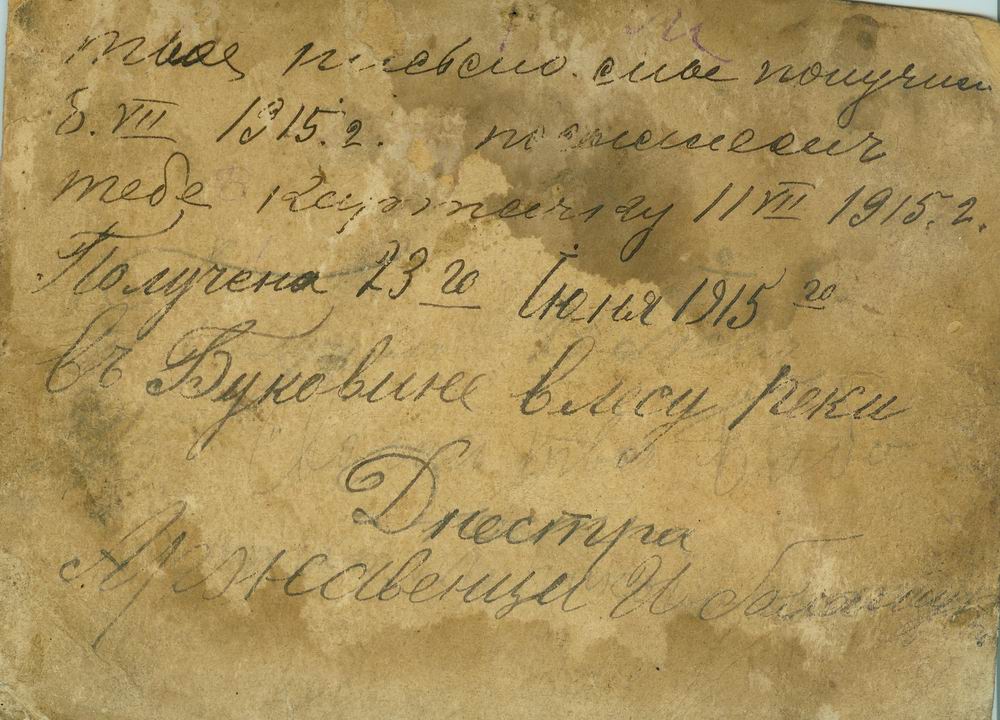 твое письмо мы получили
8. VII 1915. г. посилаем
тебе карточку 11 VII 1915. г.
Получена 23 го Iюня 1915 го
въ Буковине в лесу реки
Днестра
Аржавенцы И